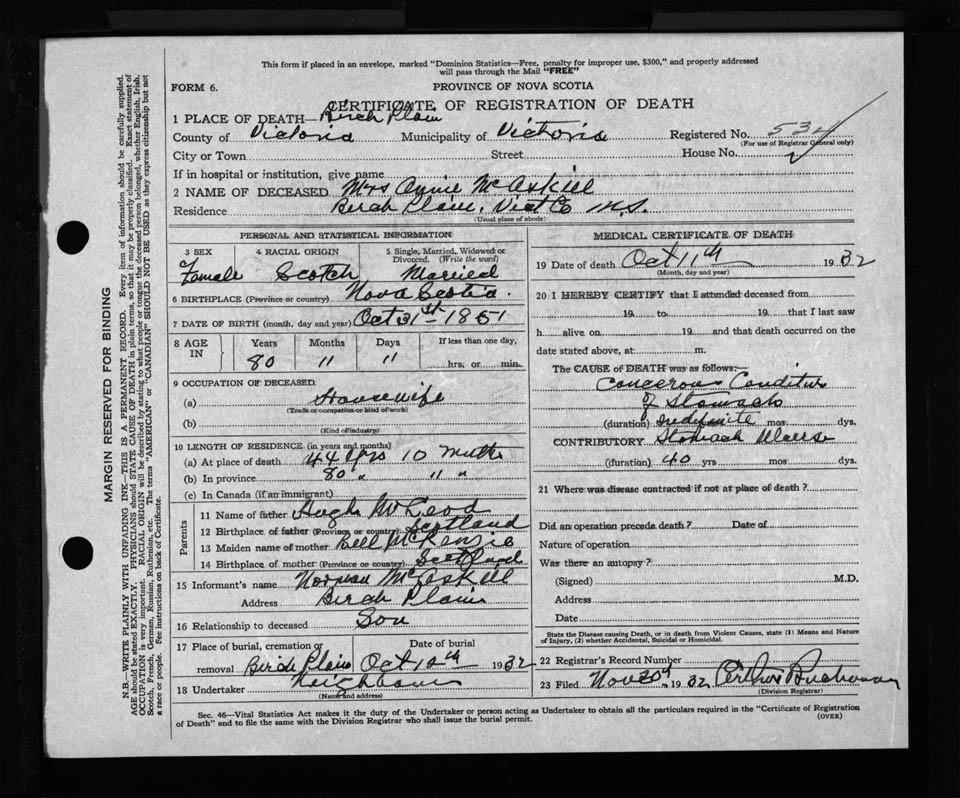 This form if placed in an envelope, marked "Dominion Statistics—Free, penalty for improper use, $300," and properly addressed
will pass through the Mail "FREE"
FORM 6.
PROVINCE OF NOVA SCOTIA
CERTIFICATE OF REGISTRATION OF DEATH
1 PLACE OF DEATH— Birch Plain
County of Victoria Municipality of Victoria Registered No. 532
(For use of Registrar General only)
City or Town Street House No.
If in hospital or institution, give name
2 NAME OF DECEASED Mrs Annie McAskill
Residence Birch Plain, Vict Co N.S.
(Usual place of abode)
PERSONAL AND STATISTICAL INFORMATION
3 SEX 4 RACIAL ORIGIN 5 Single, Married, Widowed or Divorced. (Write the word)
Female Scotch Married
6 BIRTHPLACE (Province or country) Nova Scotia
7 DATE OF BIRTH (month, day and year) Oct 31st 1851
8 AGE IN Years Months Days If less than one day,
80 11 11 hrs. or min.
9 OCCUPATION OF DECEASED
(a) Housewife
(Trade or occupation or kind of work)
(b)
(Kind of industry)
10 LENGTH OF RESIDENCE (in years and months)
(a) At place of death 44 yrs 10 mths
(b) In province 80 " 11 "
(c) In Canada (if an immigrant)
Parents
11 Name of father Hugh McLeod
12 Birthplace of father (Province or country) Scotland
13 Maiden name of mother Bell McKenzie
14 Birthplace of mother (Province or country) Scotland
15 Informant's name Norman McAskill
Address Birch Plain
16 Relationship to deceased Son
17 Place of burial, cremation or removal Date of burial
Birch Plain Oct 12th 1932
18 Undertaker Neighbours
(Name and address)
MEDICAL CERTIFICATE OF DEATH
19 Date of death Oct 11th 1932
(Month, day and year)
20 I HEREBY CERTIFY that I attended deceased from
19 to 19 that I last saw
h alive on 19 and that death occurred on the
date stated above, at m.
The CAUSE of DEATH was as follows:—
Cancerous Condition
of Stomach
(duration) indefinite mos dys.
CONTRIBUTORY Stomach
(duration) 40 yrs mos dys.
21 Where was disease contracted if not at place of death?
Did an operation precede death? Date of
Nature of operation
Was there an autopsy?
(Signed) M.D.
Address
Date
State the Disease causing Death, or in death from Violent Causes, state (1) Means and Nature
of Injury, (2) whether Accidental, Suicidal or Homicidal.
22 Registrar's Record Number
23 Filed Nov 30th 1932 Arthur Buchanan
(Division Registrar)
Sec. 46—Vital Statistics Act makes it the duty of the Undertaker or person acting as Undertaker to obtain all the particulars required in the "Certificate of Registration
of Death" and to file the same with the Division Registrar who shall issue the burial permit.
(OVER)
MARGIN RESERVED FOR BINDING
N.B.—WRITE PLAINLY WITH UNFADING INK—THIS IS A PERMANENT RECORD. Every item of information should be carefully supplied.
AGE should be stated EXACTLY. PHYSICIANS should STATE CAUSE OF DEATH in plain terms, so that it may be properly classified. Exact statement of
OCCUPATION is very important. RACIAL ORIGIN will be described by stating to what people or tongue the deceased person belonged, whether English, Irish,
Scotch, French, German, Russian, Ruthenian, etc. The terms "AMERICAN" or "CANADIAN" SHOULD NOT BE USED as they express citizenship but not
a race or people. See instructions on back of Certificate.